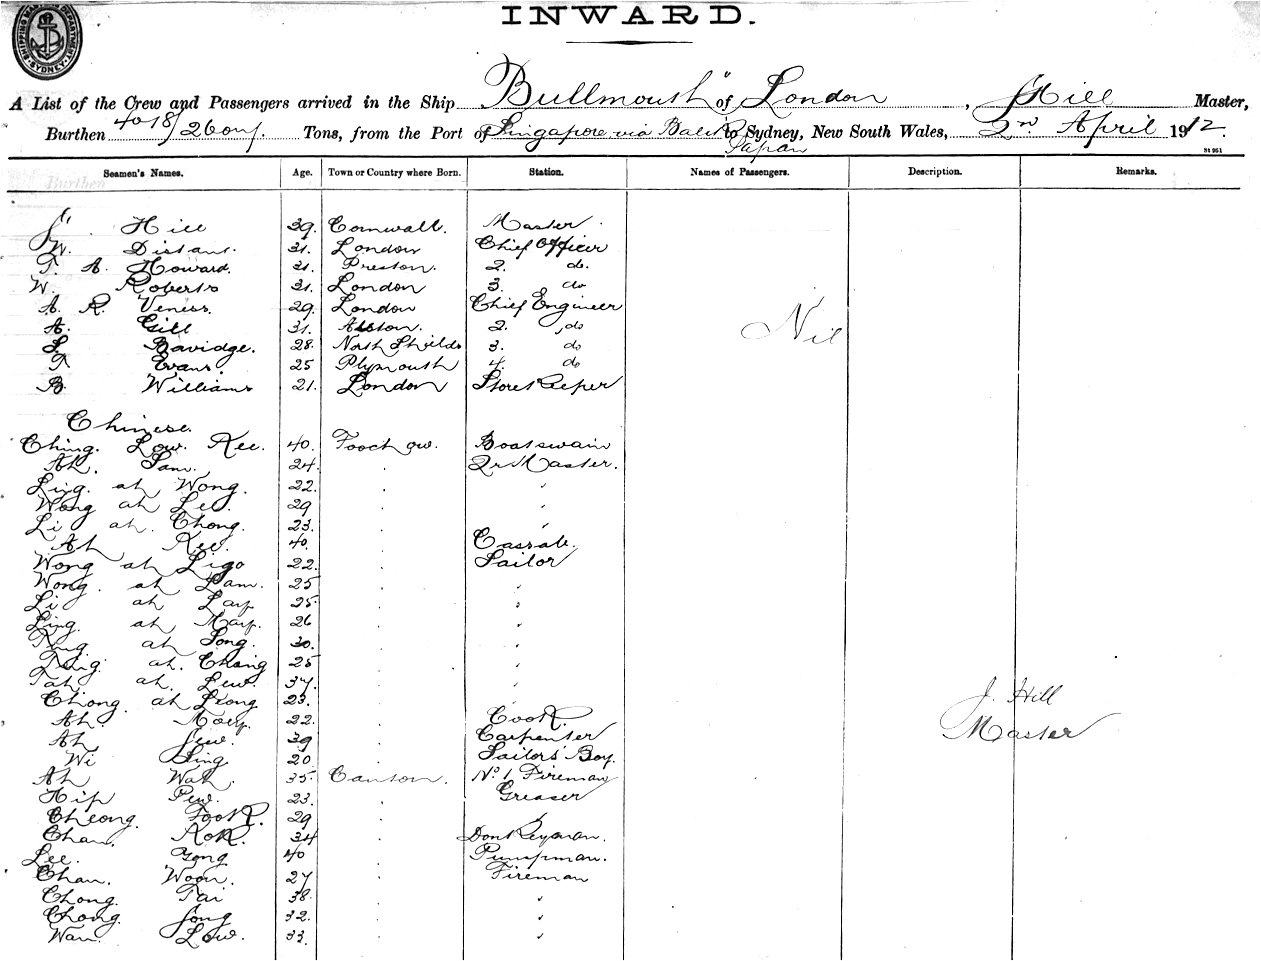 SHIPPING MASTERS DEPARTMENT SYDNEY
INWARD.
A List of the Crew and Passengers arrived in the Ship "Bullmouth" of London, J Hill Master,
Burthen 4018/26 Tons, from the Port of Singapore via to Sydney, New South Wales, 2nd April 1912.
Papan
Seamen's Names. Age. Town or Country where Born. Station. Names of Passengers. Description. Remarks.
J. Hill 39. Cornwall. Master.
W. Distant. 31. London Chief Officer
T. A. Howard. 31. Preston. 2. do.
W. Roberts 31. London 3. do
A. R. Veness. 29. London Chief Engineer
A. Gill 31. Alston. 2. do
Nil
S Bavidge. 28. North Shields 3. do
T Evans. 25 Plymouth 4. do
B. Williams 21. London Store Keeper
Chinese.
Ching. Low. Kee. 40. Foochow. Boatswain
Ah. Sam. 24. . Qr Master.
Ling. ah Wong. 22. . "
Wong ah Lee. 29 . "
Li ah. Chong. 23. . "
Ah Kee. 40. . Cassab.
Wong ah Ligo 22. . Sailor
Wong. ah Lam. 25 . "
Li ah Lay 25. . "
Ling. ah May. 26 . "
ah Song. 30. . "
ah. Chang 25 . "
Tah ah. Lew. 37. . "
Chong ah Leong 23. . "
J. Hill
Ah. Moey. 22. . Cook.
Master
Ah Jew. 39 . Carpenter
Wi Sing 20 . Sailors' Boy.
Ah Wah. 35 Canton. No. 1 Fireman
Hip Pew. 23. . Greaser
Cheong. Fook. 29 . "
Chan. Kok. 34 . Donkeyman.
Lee. Yong 40 . Pumpman.
Chan. Woon. 27 . Fireman
Chong. Tai 38. . "
Chong. Song 32. . "
Wan. Low. 33. . "